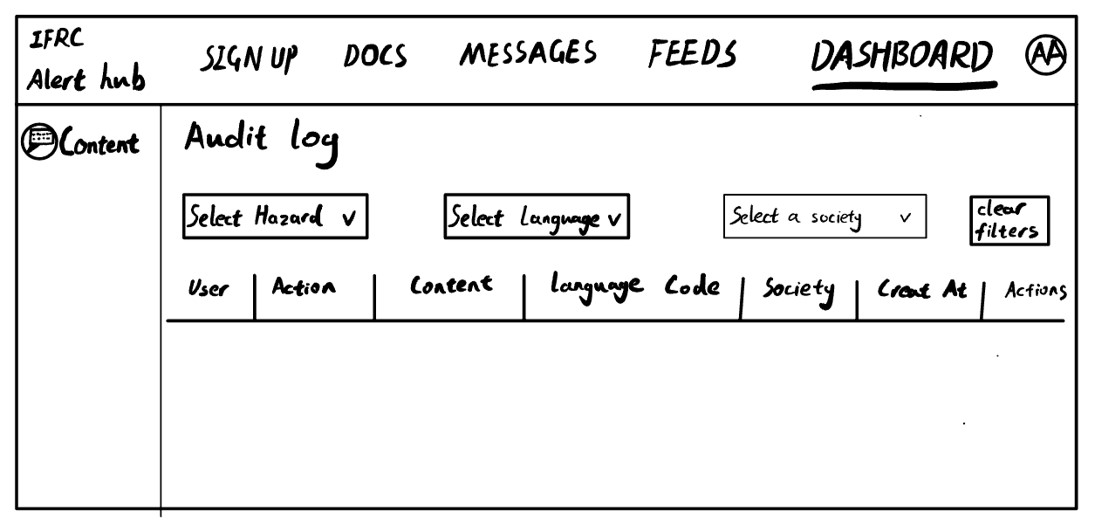 IFRC
Alert hub
SIGN UP DOCS MESSAGES FEEDS DASHBOARD AA
Content
Audit log
Select Hazard
Select Language
Select a society
clear
filters
User Action Content Language Code Society Creat At Actions